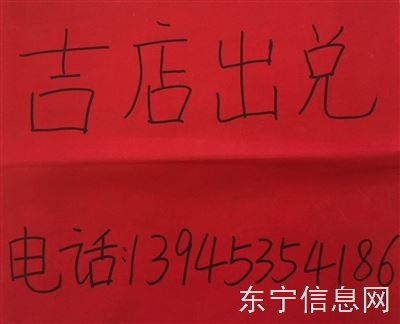 吉店出兑
电话:13945354186
东宁信息网